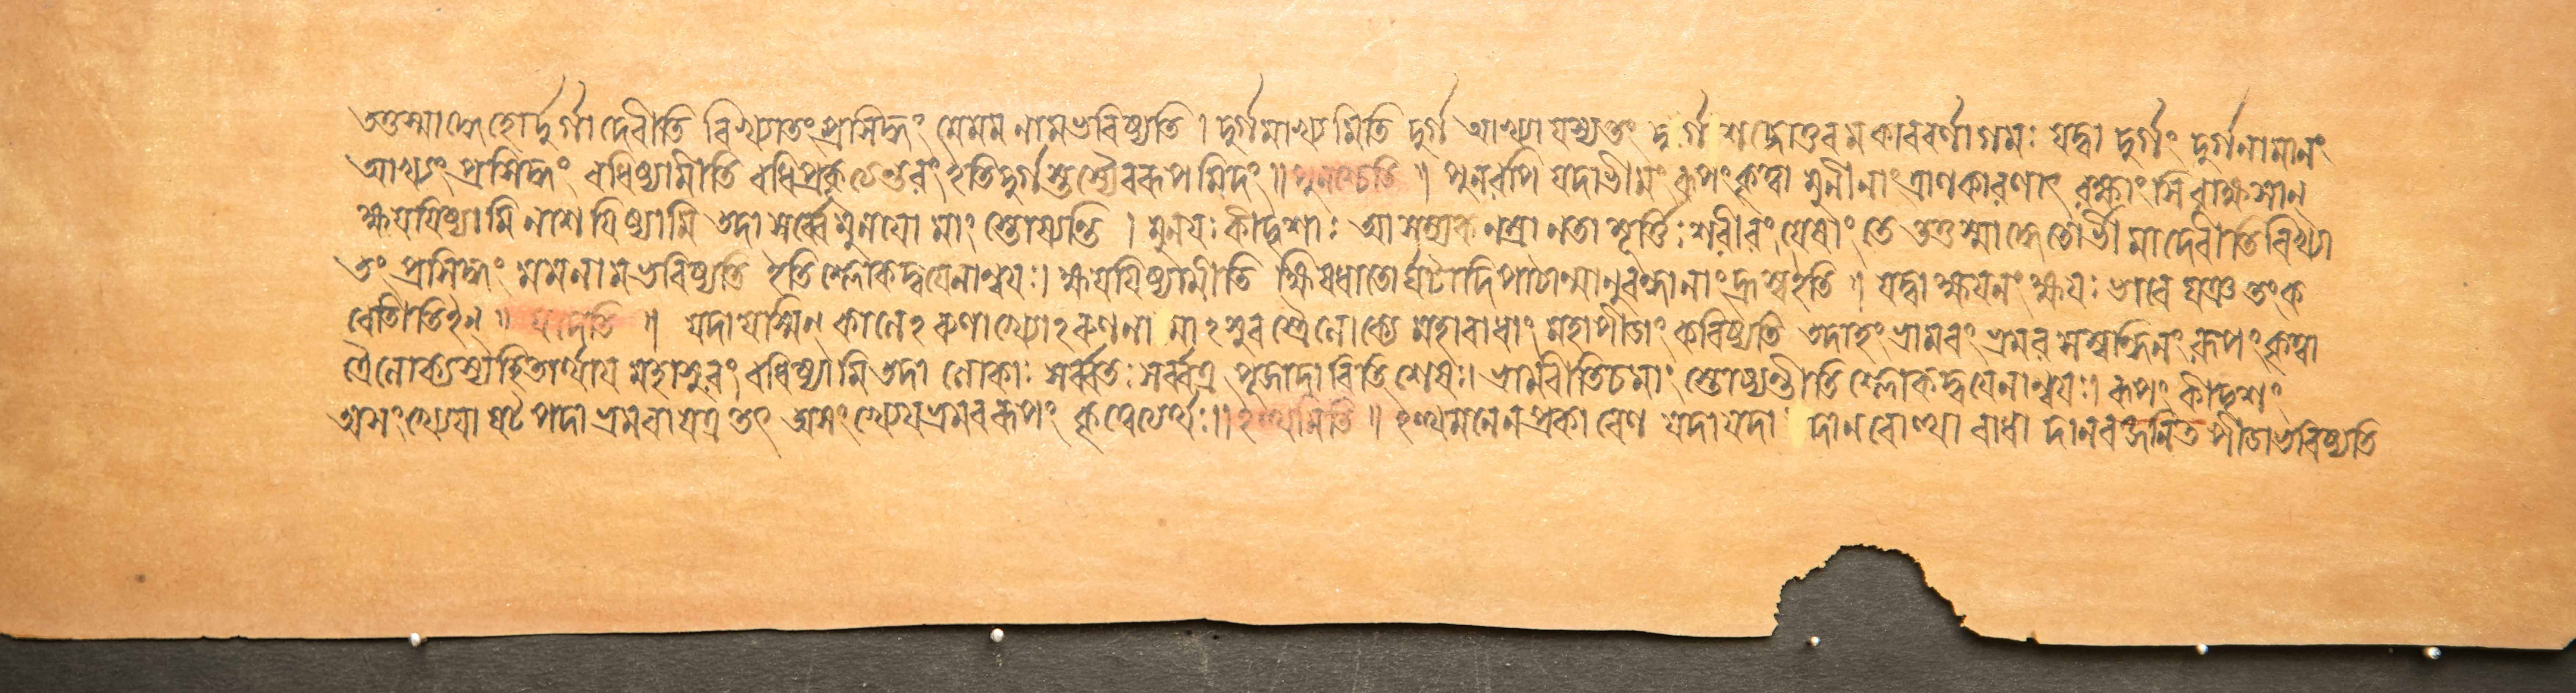 ততস্মাদ্ধেতোর্দুর্গাদেবীতি বিখ্যাতং প্রসিদ্ধং মে মম নাম ভবিষ্যতি । দুর্গমাখ্যমিতি দুর্গ আখ্যা যস্য তং দুর্গশব্দোত্তরমকারবর্ণাগমঃ যদ্বা দুর্গং দুর্গনামানং
আখ্যং প্রসিদ্ধং বধিষ্যামীতি বধিপ্রকৃত্যন্তরং ইতি দুর্গস্তস্যৈব রূপমিদং ॥ পুনশ্চেতি ॥ পুনরপি যদা ভীমং রূপং কৃত্বা মুনীনাং ত্রাণকারণাৎ রক্ষাংসি রাক্ষসান্
ক্ষয়য়িষ্যামি নাশয়িষ্যামি তদা সর্ব্বে মুনয়ো মাং স্তোষ্যন্তি । মুনয়ঃ কীদৃশাঃ আ সম্যক নম্রা নতা মূর্ত্তিঃ শরীরং যেষাং তে তত্তস্মাদ্ধেতোর্ভীমাদেবীতি বিখ্যা
তং প্রসিদ্ধং মম নাম ভবিষ্যতি ইতি শ্লোকদ্বয়েনান্বয়ঃ । ক্ষয়য়িষ্যামীতি ক্ষিষধাতোর্ঘটাদিপাঠান্মানুবন্ধানাং হ্রস্ব ইতি ॥ যদ্বা ক্ষয়নং ক্ষয়ঃ ভাবে ঘঞ তং ক
রোতীতি ইন্ ॥ যদেতি ॥ যদা যস্মিন্ কালেঽরুণাখ্যোঽরুণনামাঽসুরস্ত্রৈলোক্যে মহাবাধাং মহাপীডাং করিষ্যতি তদাহং ভ্রামরং ভ্রমরসম্বন্ধিনং রূপং কৃত্বা
ত্রৈলোক্যস্য হিতার্থায় মহাসুরং বধিষ্যামি তদা লোকাঃ সর্ব্বতঃ সর্ব্বত্র পূজাদাবিতি শেষঃ । ভ্রামরীতি চ মাং স্তোষ্যন্তীতি শ্লোকদ্বয়েনান্বয়ঃ । রূপং কীদৃশং
অসংখ্যেয়া ষট্পদা ভ্রমরা যত্র তৎ অসংখ্যেয়ভ্রমররূপং কৃত্বেত্যর্থঃ ॥ ইত্থমিতি ॥ ইত্থমনেন প্রকারেণ যদা যদা দানবোত্থা বাধা দানবজনিত পীডা ভবিষ্যতি